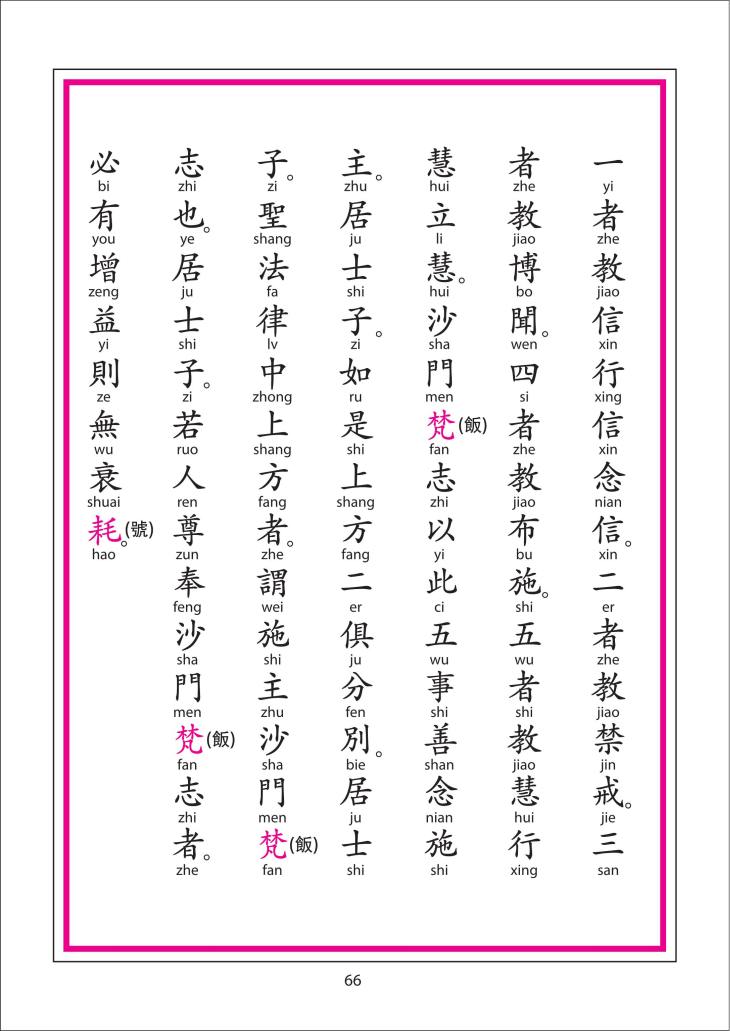 一者教信行信念信。二者教禁戒。三
yi zhe jiao xin xing xin nian xin er zhe jiao jin jie san
者教博聞。四者教布施。五者教慧行
zhe jiao bo wen si zhe jiao bu shi wu shi jiao hui xing
慧立慧。沙門梵(飯)志以此五事善念施
hui li hui sha men fan zhi yi ci wu shi shan nian shi
主。居士子。如是上方二俱分別。居士
zhu ju shi zi ru shi shang fang er ju fen bie ju shi
子。聖法律中上方者。謂施主沙門梵(飯)
zi shang fa lv zhong shang fang zhe wei shi zhu sha men fan
志也。居士子。若人尊奉沙門梵(飯)志者。
zhi ye ju shi zi ruo ren zun feng sha men fan zhi zhe
必有增益則無衰耗(號)。
bi you zeng yi ze wu shuai hao
66